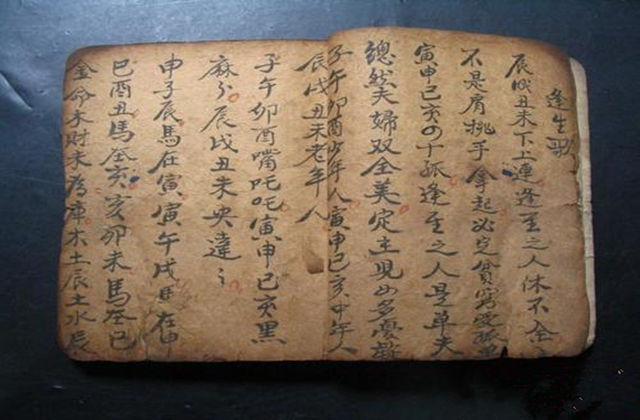 逢生歌
辰戌丑未下上連逢至之人休不全
不是肩挑手拿起必定貧窮受孤
寅申已亥四丁孤逢至之人是单夫
總然夫婦双全美定主現多憂
子午卯酉少年人寅申已亥中午人
辰戌丑未老年人
子午卯酉嘴吒吒寅申已亥黑
麻分辰戌丑未央違
申子辰馬在寅寅午戌馬在申
巳酉丑馬在亥亥卯未馬在巳
金命未財未為庫木土辰土水辰